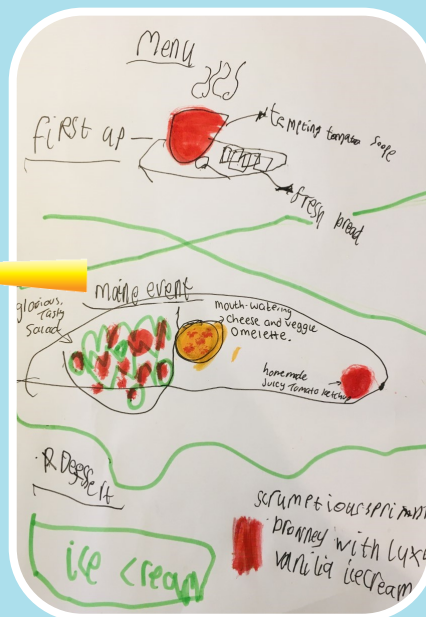 Menu
FiRST up
tempting tomato soope
fresh bread
maine event
glorious,
Tasty
Salad
mouth-watering
Cheese and veggie
Omelette.
homemade
Juicy Tomato ketchup
Dessert
ice cream
scrumptious
browney with lux
vanilia icecream